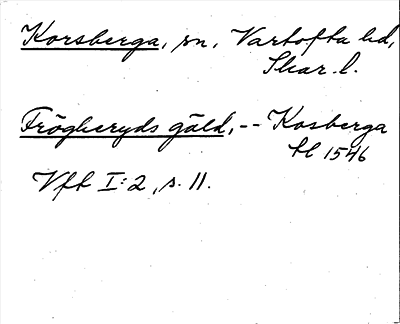 Korsberga, sn, Vartofta hd,
Skar. l.
Frögheryds gäld, -- Kosberga
hl 1546
Vft I:2, s. 11.